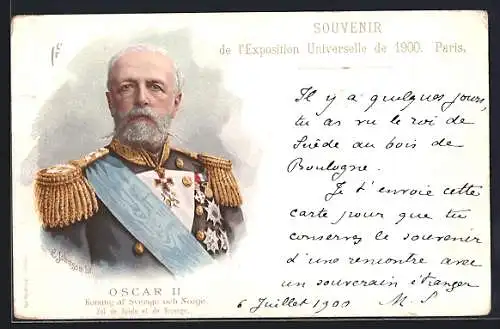 SOUVENIR
de l'Exposition Universelle de 1900. Paris.
Il y a quelques jours,
tu as vu le roi de
Suède au bois de
Boulogne.
Je t'envoie cette
carte pour que tu
conserves le souvenir
d'une rencontre avec
un souverain étranger
6 Juillet 1900 M. S
OSCAR II
Konung af Sverige och Norge.
Roi de Suède et de Norvège.